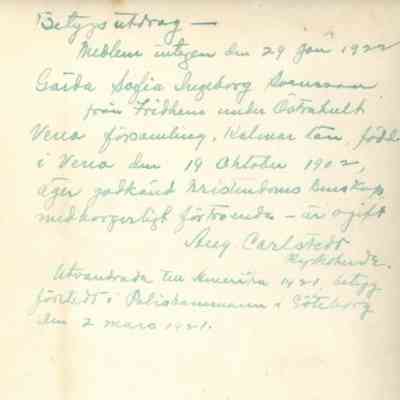 Betygsutdrag —
Medlem intagen den 29 Jan 1922
Gärda Sofia Ingeborg Svensson
från Fridhem under Östrahult
Vena församling, Kalmar län, född
i Vena den 19 Oktober 1902,
äger godkänd kristendoms kunskap,
medborgerligt förtroende — är ogift
Aug. Carlstedt
Kyrkoherde.
Utvandrade till Amerika 1921, betyg
företedt i Poliskammaren i Göteborg
den 2 mars 1921.